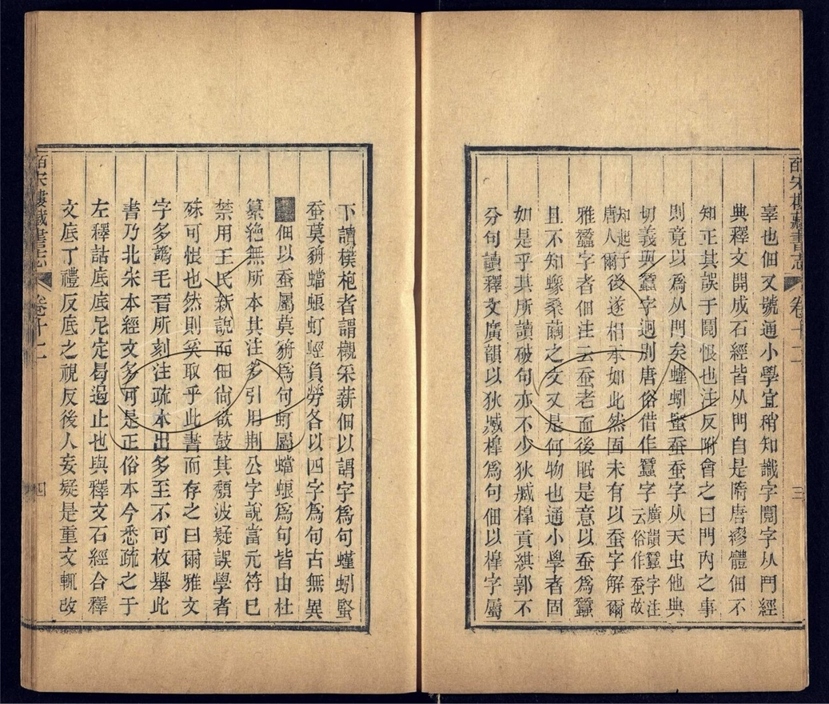 皕宋樓藏書志 卷十二 三
辜也佃又號通小學宜稍知識字鬩字从門經
典釋文開成石經皆从門自是隋唐繆體佃不
知正其誤于鬩恨也注反附會之曰門内之事
則竟以爲从門矣螼蚓蜸蚕蚕字从天虫他典
切義與蠶字迥别唐俗借作蠶字廣韻蠶字注云俗作蚕故
知起于唐人爾後遂相承如此然固未有以蚕字解爾
雅蠶字者佃注云蚕老而後眠是意以蚕爲蠶
且不知蟓桑繭之文又是何物也通小學者固
如是乎其所讀破句亦不少狄臧槔貢綦郭不
分句讀釋文廣韻以狄臧槔爲句佃以槔字屬
下讀樸枹者謂櫬采薪佃以謂字爲句螼蚓蜸
蚕莫貈蟷蜋虰蛵負勞各以四字爲句古無異
佃以蚕屬莫貈爲句虰屬蟷蜋爲句皆由杜
纂絶無所本其注多引用荆公字說當元符已
禁用王氏新說而佃尚欲鼓其頽波疑誤學者
殊可恨也然則奚取乎此書而存之曰爾雅文
字多譌毛晉所刻注疏本出多至不可枚舉此
書乃北宋本經文多可是正俗本今悉疏之于
左釋詁底底尼定曷遏止也與釋文石經合釋
文底丁禮反底之視反後人妄疑是重文輒改
皕宋樓藏書志 卷十二 四